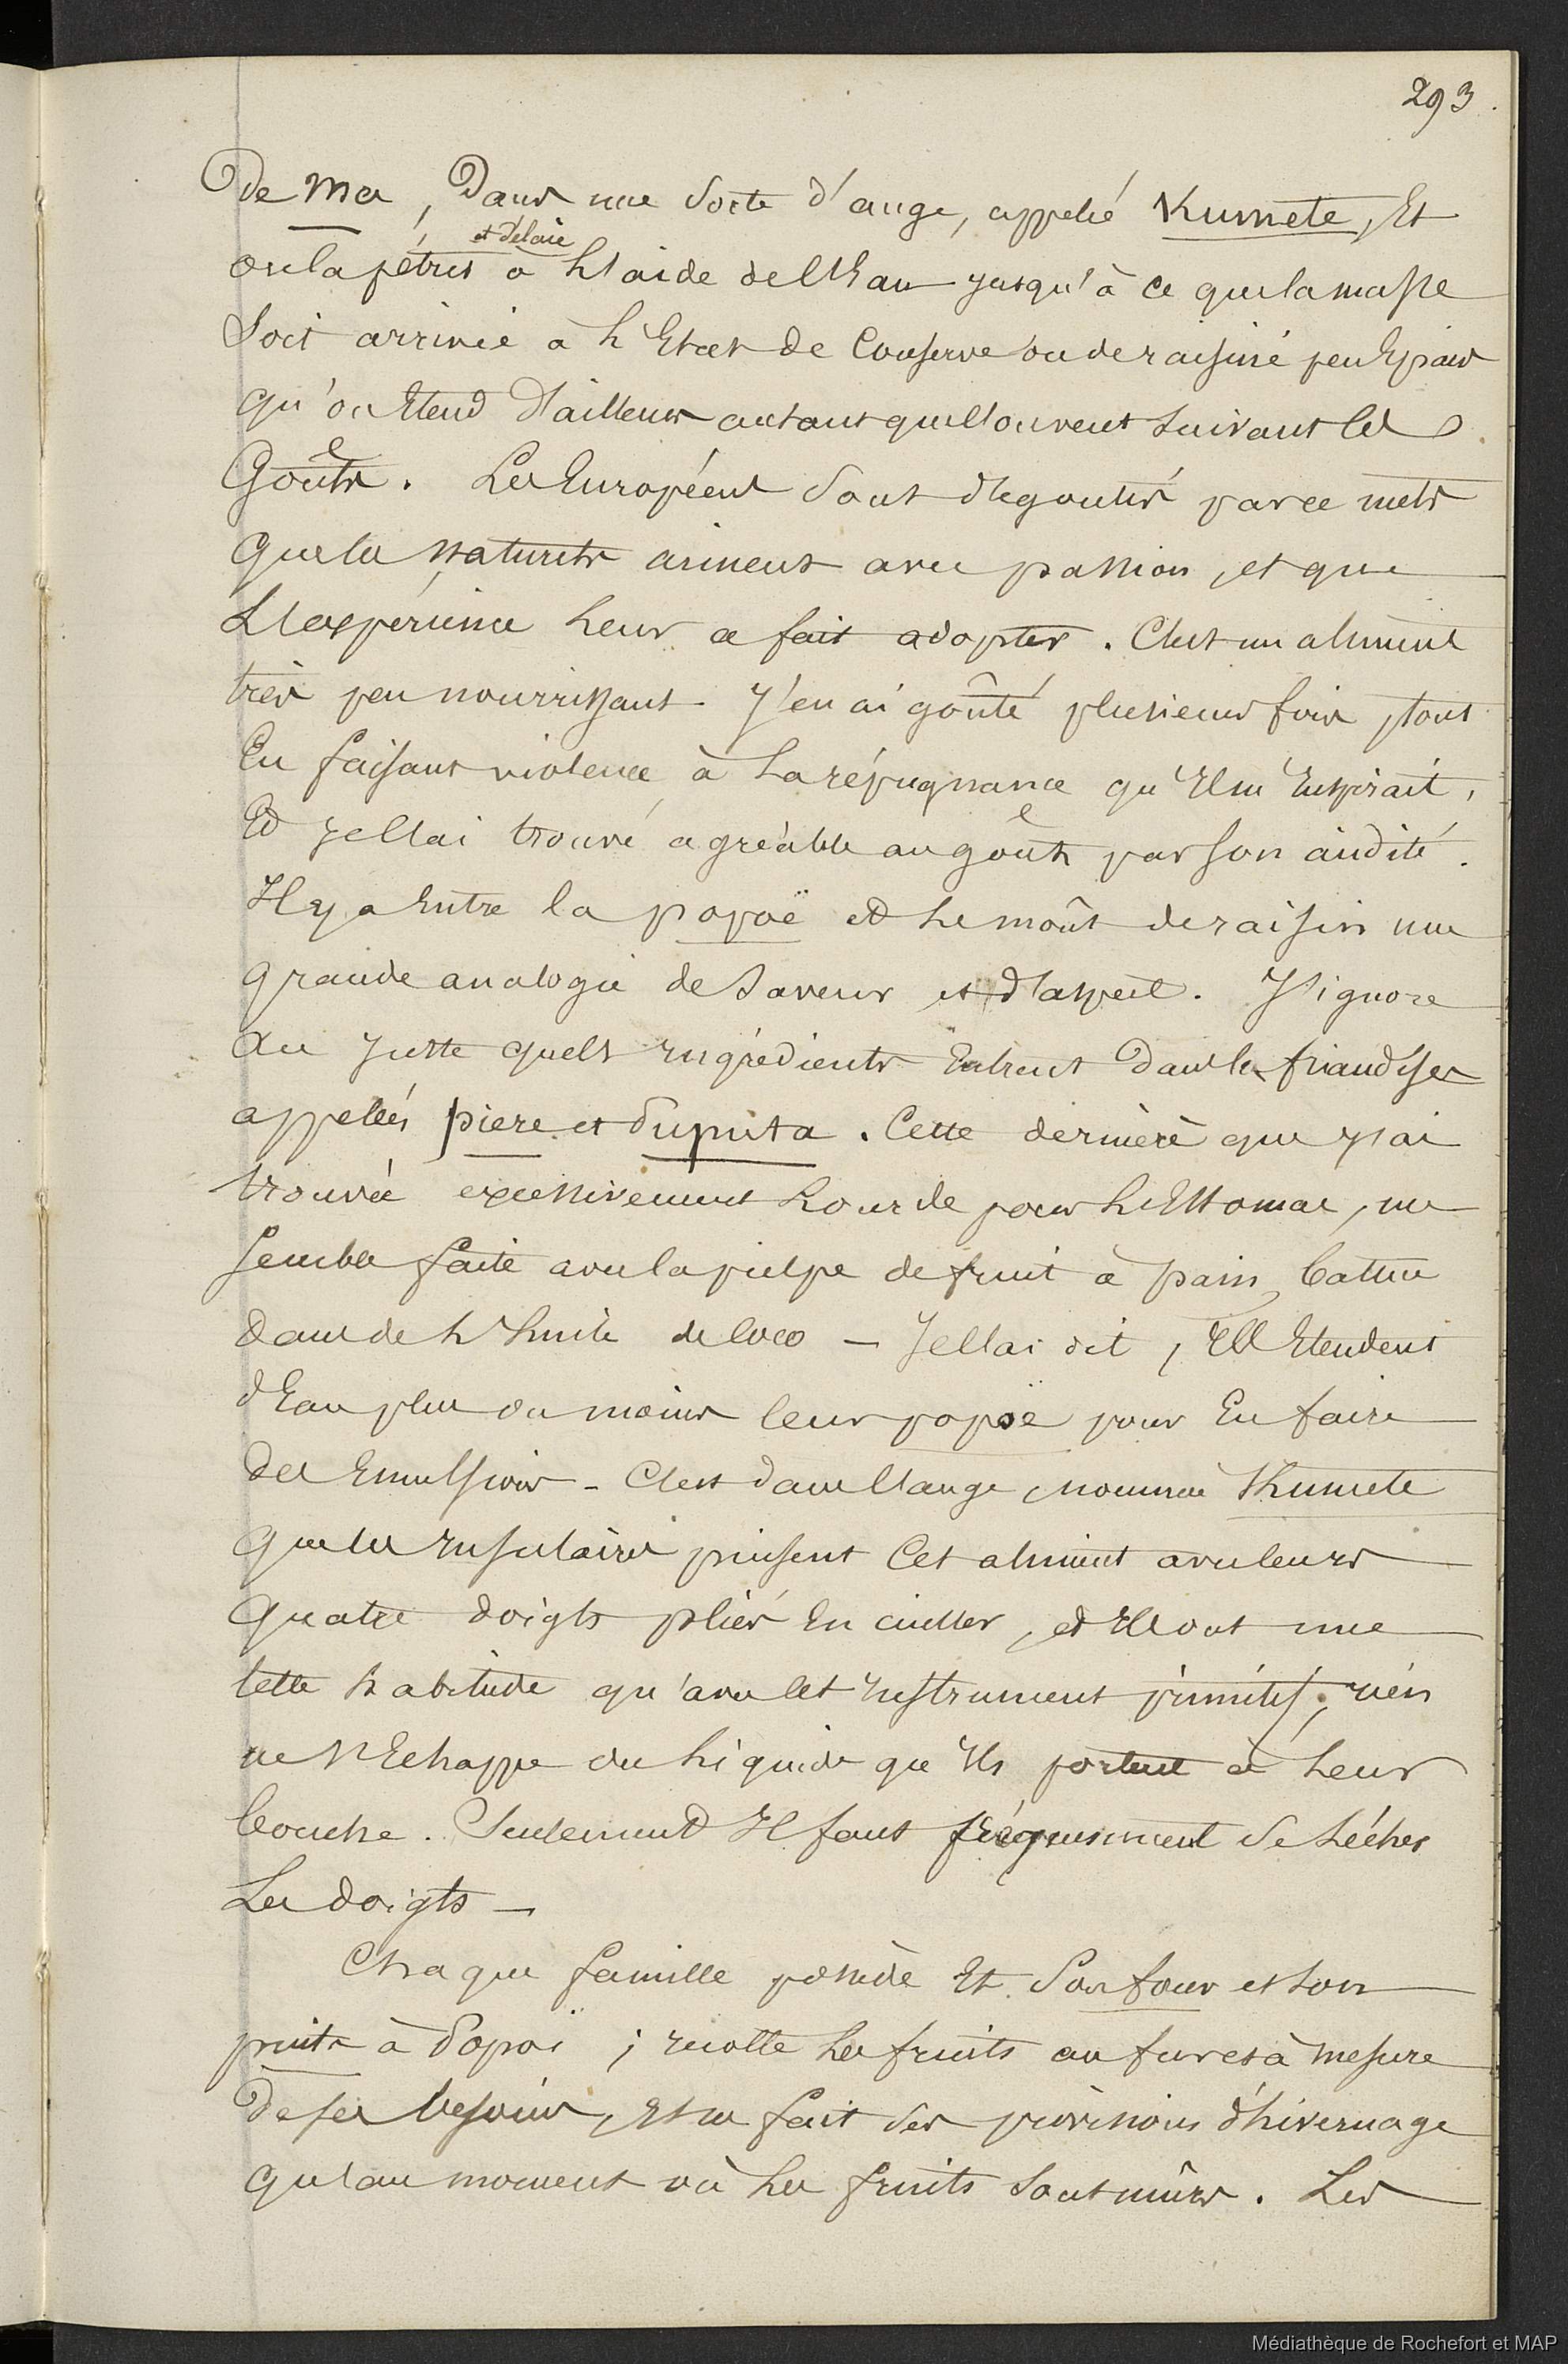 293.
De Ma, Dans une Sorte d'auge, appelé Kumete, Et
et délaie
on la pétris à l'aide de l'Eau jusqu'à ce que la masse
Soit arrivée à l'Etat de Conserve ou de raisiné peu Epais
qu'on Etend d'ailleurs autant que l'on veut suivant les
Goûts. Les Européens Sont dégoutés par ce mets
que les Naturels aiment avec passion, et que
L'expérience leur a fait adopter. C'est un aliment
très peu nourrissant. J'en ai goûté plusieurs fois, tout
En faisant violence à la répugnance qu'Il m'Inspirait,
Et je l'ai trouvé agréable au goût par son acidité.
Il y a Entre la popoë et le moût de raisin une
grande analogie de Saveur et d'aspect. J'ignore
au juste quels Ingrédients Entrent Dans les friandises
appelées piere et Suputa. Cette dernière que j'ai
trouvée excessivement Lourde pour l'Estomac, me
semble faite avec la pulpe de fruit à pain, battue
dans de l'huile de Coco — Je l'ai dit, Ils Etendent
d'Eau plus ou moins leur popoë pour En faire
des Emulsions - C'est dans l'auge, nommée Kumete
que les Insulaires puisent Cet aliment avec leurs
quatre doigts pliés En cuiller, et Ils ont une
telle habitude qu'avec Cet Instrument primitif, rien
ne s'Echappe du liquide qu'Ils portent à leur
bouche. Seulement Il faut fréquemment Se Lécher
Les doigts —
Chaque famille possède Et Son four et Son
puits à Popoï ; récolte Les fruits au fur et à mesure
De ses besoins, Et ne fait des provisions d'hivernage
qu'au moment où Les fruits Sont mûrs. Les
Médiathèque de Rochefort et MAP